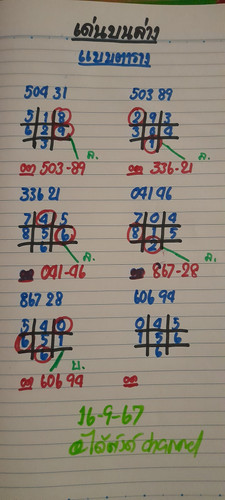 เด่นบนล่าง
แบบตาราง
504 31
503 89
5 1 8
6 2 9
3
2 9 3
3 6 4
1
ล.
ล.
503-89
336-21
336 21
041 46
7 4 5
8 5 6
6
7 0 4
8 5 5
2
ล.
ล.
041-46
867-28
867 28
606 94
5 4 0
6 5 1
6
0 4 5
1 5 6
6
บ.
606 94
16-9-67
channel